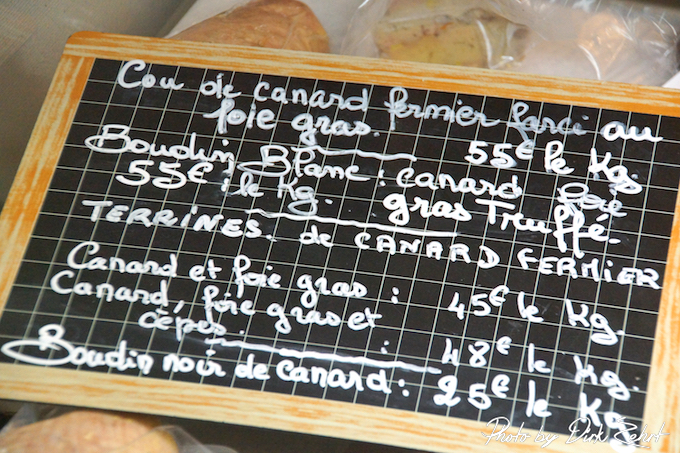 Cou de canard fermier farci au
foie gras. 55€ le Kg.
Boudin Blanc : canard foie
55€ le Kg. gras Truffé.
TERRINES. de CANARD FERMIER
Canard et foie gras : 45€ le Kg.
Canard, foie gras et
cèpes. : 48€ le Kg.
Boudin noir de canard : 25€ le Kg
Photo by Dick